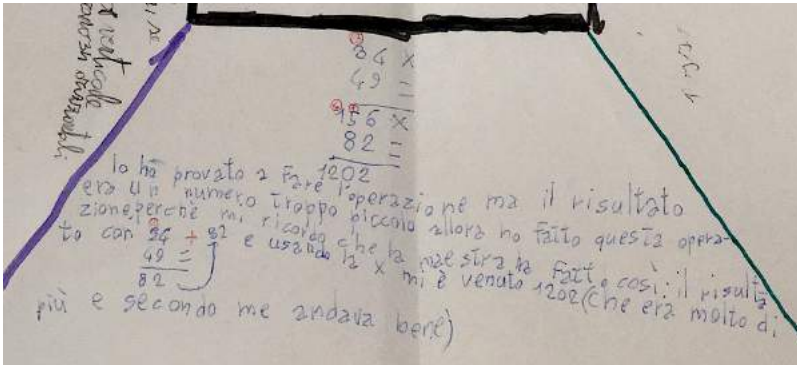 verticale
34 X
49 =
156 X
82 =
1202
Io ho provato a fare l'operazione ma il risultato
era un numero troppo piccolo allora ho fatto questa opera-
zione, perché mi ricordo che la maestra ha fatto così: il risulta
to con 34 + 82 e usando la x mi è venuto 1202 (che era molto di
49 =
82
più e secondo me andava bene)